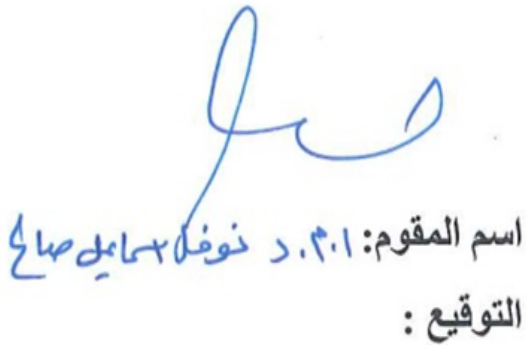 اسم المقوم: ا.م.د نوفل اسماعيل صالح
التوقيع :